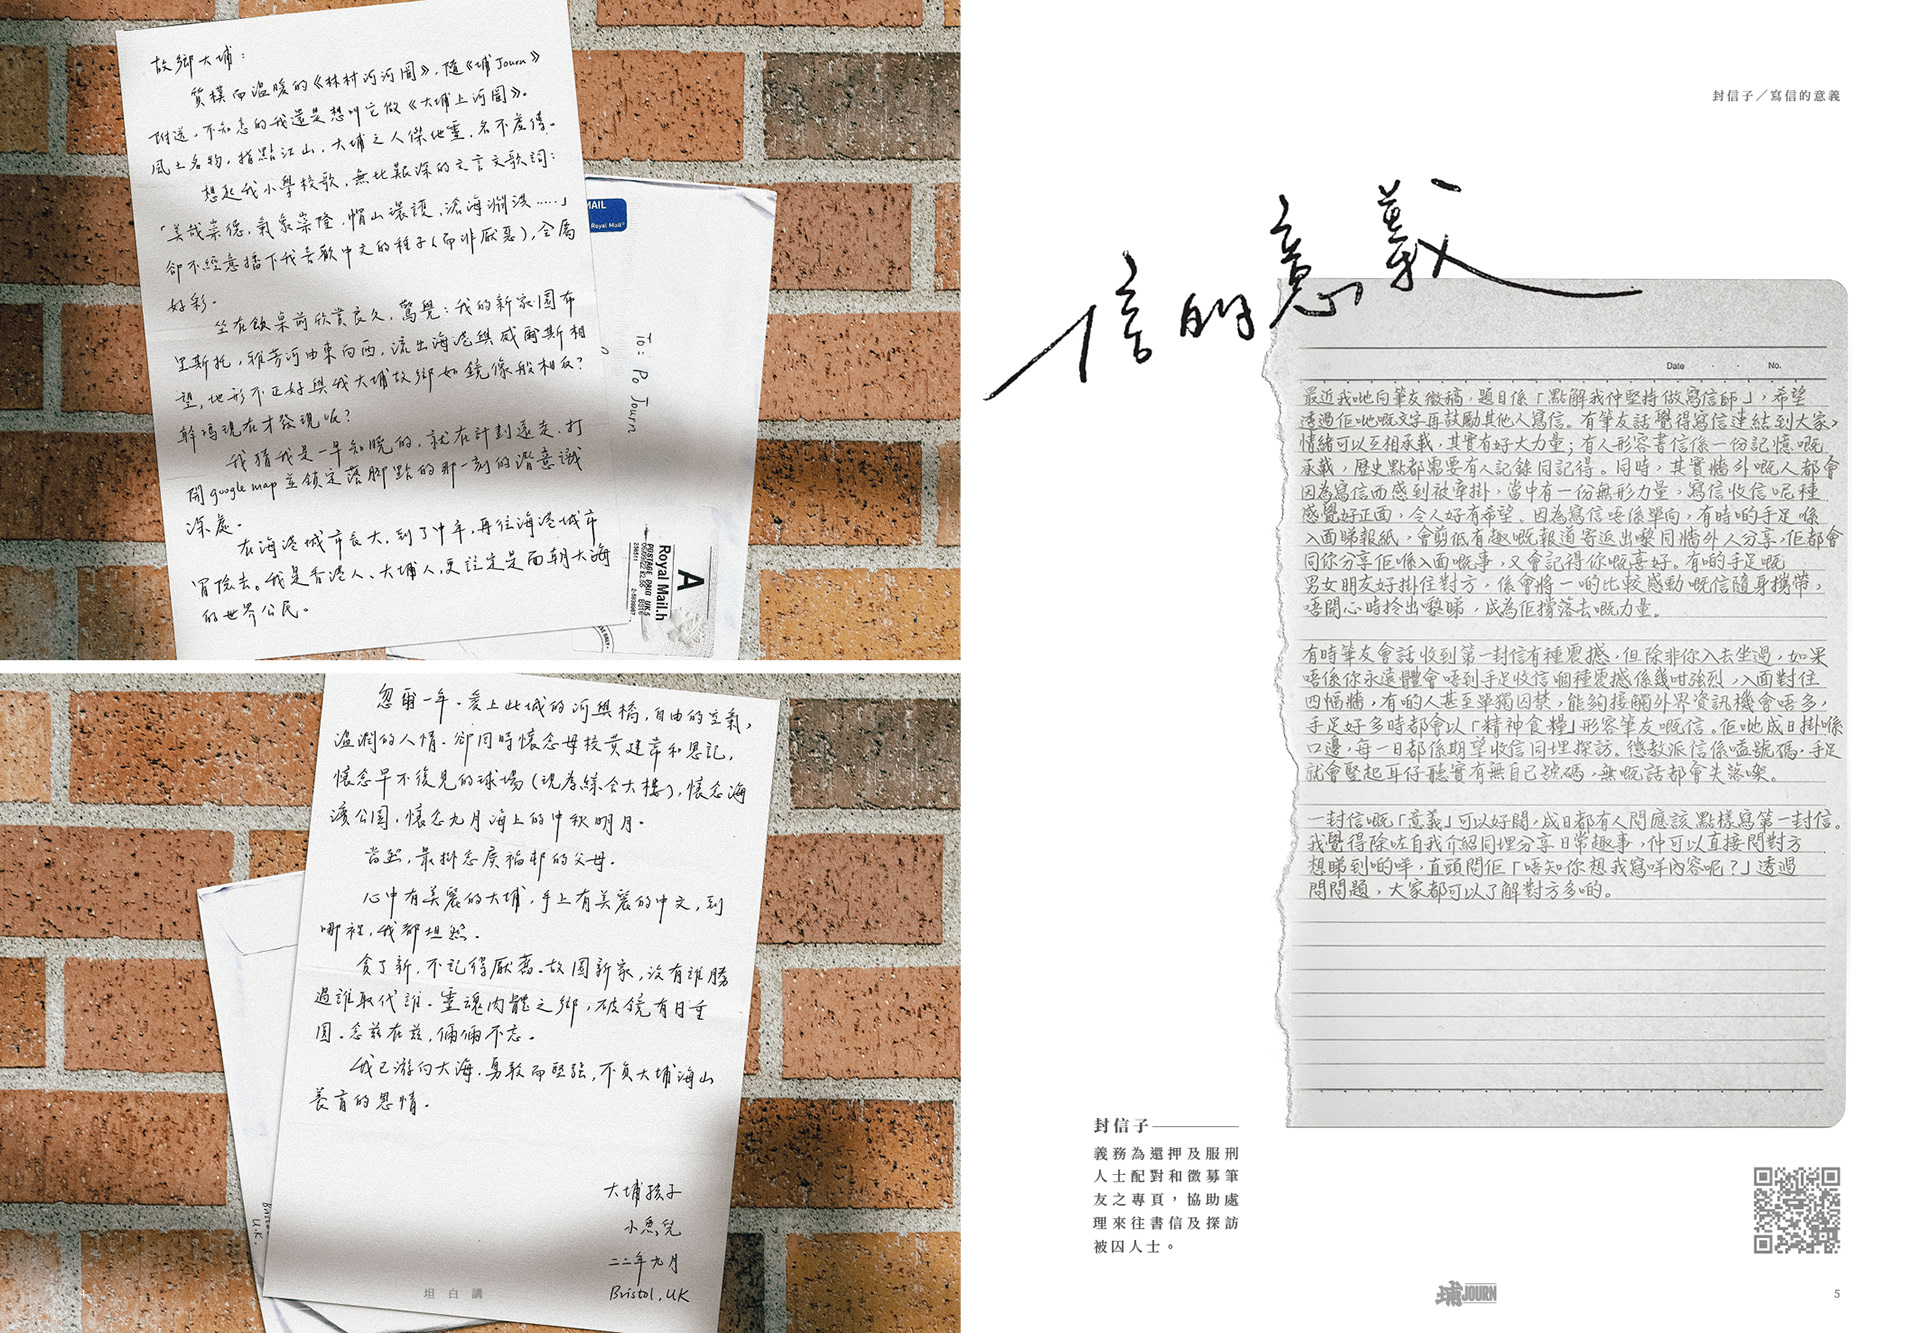 故鄉大埔：
質樸而溫暖的《林村河河圖》，隨《埔Journ》
附送，不知怎的我還是想叫它做《大埔上河圖》。
風土名物，指點江山，大埔之人傑地靈，名不虛傳。
想起我小學校歌，無比艱深的文言文歌詞：
「美哉崇德，氣象崇隆，帽山環護，滄海淵洪……」
卻不經意播下我喜歡中文的種子（而非厭惡），全屬
好彩。
坐在飯桌前欣賞良久，驚覺：我的新家園布
里斯托，雅芳河由東向西，流出海港與威爾斯相
望，地形不正好與我大埔故鄉如鏡像般相反？
幹嗎現在才發現呢？
我猜我是一早知曉的，就在計劃遠走、打
開google map並鎖定落腳點的那一刻的潛意識
深處。
在海港城市長大，到了中年，再往海港城市
冒險去。我是香港人、大埔人，更註定是面朝大海
的世界公民。
MAIL
Royal Mail
To: Po Journ
A
Royal Mail
POSTAGE PAID UK
忽爾一年。愛上此城的河與橋，自由的空氣，
溫潤的人情。卻同時懷念母校黃建常和恩記，
懷念早不復見的球場（現為綜合大樓），懷念海
濱公園，懷念九月海上的中秋明月。
當然，最掛念廣福邨的父母。
心中有美麗的大埔，手上有美麗的中文，到
哪裡，我都坦然。
貪了新，不記得厭舊。故園新家，沒有誰勝
過誰取代誰。靈魂肉體之鄉，破鏡有日重
圓。念茲在茲，倆倆不忘。
我已游向大海，勇敢而堅強，不負大埔海山
養育的恩情。
大埔孩子
小恩兒
二二年九月
Bristol, UK
Bristol
U.K.
坦白講
封信子／寫信的意義
信的意義
Date
No.
最近我哋向筆友徵稿，題目係「點解我仲堅持做寫信師」，希望
透過佢哋嘅文字再鼓勵其他人寫信。有筆友話覺得寫信連結到大家，
情緒可以互相承載，其實有好大力量；有人形容書信係一份記憶嘅
承載，歷史點都需要有人記錄同記得。同時，其實牆外嘅人都會
因為寫信而感到被牽掛，當中有一份無形力量，寫信收信呢種
感覺好正面，令人好有希望。因為寫信唔係單向，有時啲手足喺
入面睇報紙，會剪低有趣嘅報道寄返出嚟同牆外人分享，佢都會
同你分享佢喺入面嘅事，又會記得你嘅喜好。有啲手足嘅
男女朋友好掛住對方，係會將一啲比較感動嘅信隨身攜帶，
唔開心時拎出嚟睇，成為佢撐落去嘅力量。
有時筆友會話收到第一封信有種震撼，但除非你入去坐過，如果
唔係你永遠體會唔到手足收信個種震撼係幾咁強烈，入面對住
四幅牆，有啲人甚至單獨囚禁，能夠接觸外界資訊機會唔多，
手足好多時都會以「精神食糧」形容筆友嘅信。佢哋成日掛喺
口邊，每一日都係期望收信同埋探訪。懲教派信係嗌號碼，手足
就會豎起耳仔聽實有無自己號碼，無嘅話都會失落㗎。
一封信嘅「意義」可以好闊，成日都有人問應該點樣寫第一封信。
我覺得除咗自我介紹同埋分享日常趣事，仲可以直接問對方
想睇到啲咩，直頭問佢「唔知你想我寫咩內容呢？」透過
問問題，大家都可以了解對方多啲。
封信子
義務為還押及服刑
人士配對和徵募筆
友之專頁，協助處
理來往書信及探訪
被囚人士。
埔JOURN
5